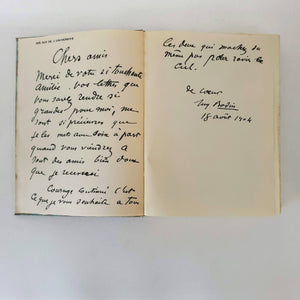 182 RUE DE L'UNIVERSITÉ
Chers amis
Merci de votre si touchante
Amitié. Vos lettres que
vous savez rendre si
grandes pour moi, me
sont si précieuses que
je les mets avec soin à part
quand vous viendrez
sont des amis bien doux
que je recevrai
Courage c'est
ce que je vous souhaite à tous
Ces deux qui marchez du
même pas pour ravir le
Ciel.
de cœur
Aug Rodin
18 août 1904